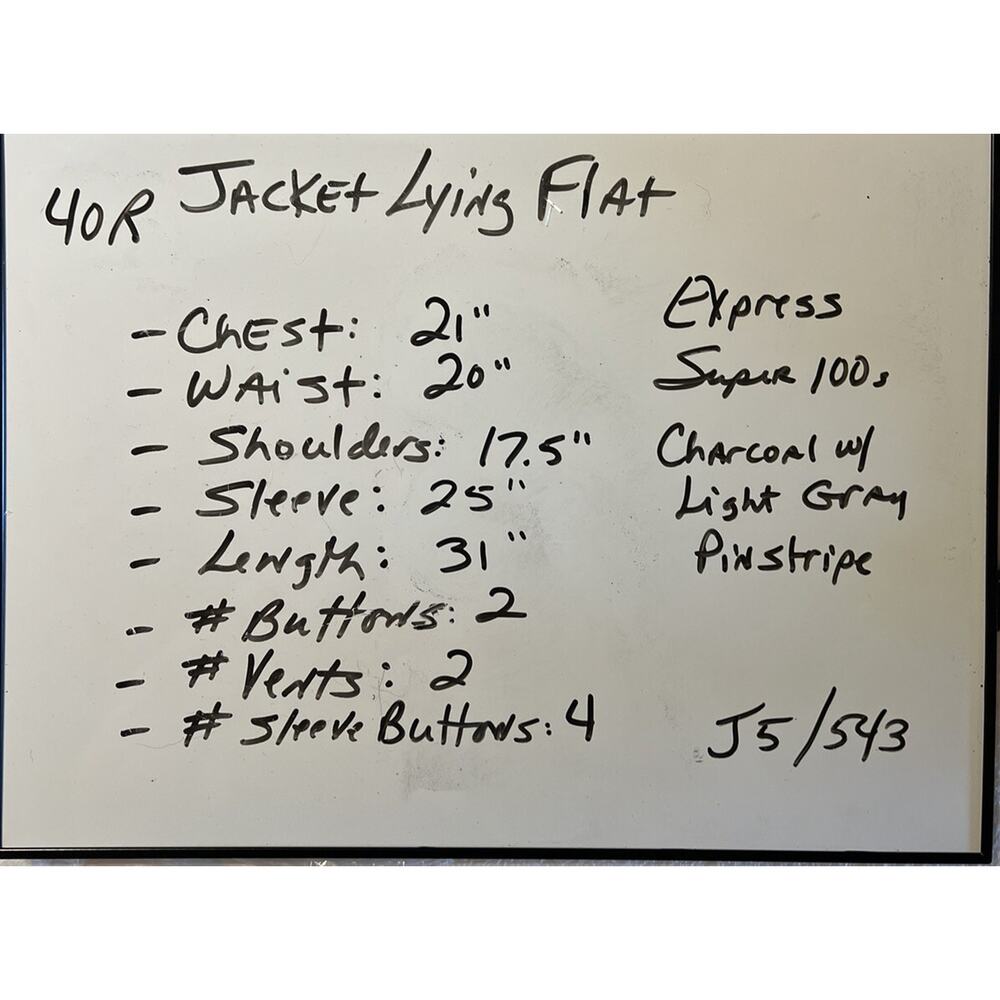 40R Jacket Lying Flat
- Chest: 21"
- Waist: 20"
- Shoulders: 17.5"
- Sleeve: 25"
- Length: 31"
- # Buttons: 2
- # Vents: 2
- # Sleeve Buttons: 4
Express
Super 100s
Charcoal w/
Light Gray
Pinstripe
J5/543